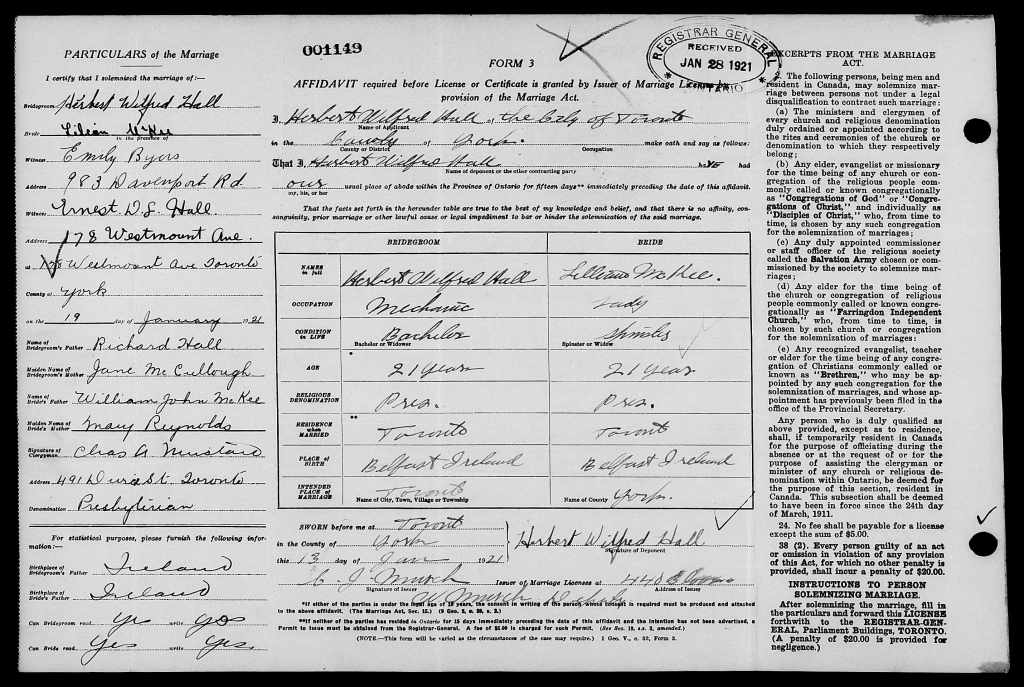 PARTICULARS of the Marriage
I certify that I solemnized the marriage of:—
Bridegroom Herbert Wilfred Hall
Bride Lilean McKee
in the presence of
Witness Emily Byers
Address 983 Davenport Rd
Witness Ernest D.S. Hall.
Address 178 Westmount Ave.
at 178 Westmount Ave Toronto
County of York
on the 19 day of January 1921
Name of Bridegroom's Father Richard Hall
Maiden Name of Bridegroom's Mother Jane McCullough
Name of Bride's Father William John McKee
Maiden Name of Bride's Mother Mary Reynolds
Signature of Clergyman Chas A Mustard
Address 491 St. Toronto
Denomination Presbyterian
For statistical purposes, please furnish the following information:—
Birthplace of Bridegroom's Father Ireland
Birthplace of Bride's Father Ireland
Can Bridegroom read yes write yes
Can Bride read Yes write Yes.
001149
FORM 3
REGISTRAR GENERAL
RECEIVED
JAN 28 1921
ONTARIO
AFFIDAVIT required before License or Certificate is granted by Issuer of Marriage Licenses by
provision of the Marriage Act.
I, Herbert Wilfred Hall of the City of Toronto
Name of Applicant
in the County of York. make oath and say as follows:
County or District Occupation
That I, Herbert Wilfred Hall had
Name of deponent or the other contracting party
our usual place of abode within the Province of Ontario for fifteen days** immediately preceding the date of this affidavit.
my, his, or her
That the facts set forth in the hereunder table are true to the best of my knowledge and belief, and that there is no affinity, consanguinity, prior marriage or other lawful cause or legal impediment to bar or hinder the solemnization of the said marriage.
BRIDEGROOM BRIDE
NAMES in full Herbert Wilfred Hall Lillian McKee.
OCCUPATION Mechanic Lady
CONDITION in LIFE Bachelor Spinster
Bachelor or Widower Spinster or Widow
*
AGE 21 Years 21 Years
RELIGIOUS DENOMINATION Pres. Pres.
**
RESIDENCE when MARRIED Toronto Toronto
PLACE OF BIRTH Belfast Ireland Belfast Ireland
INTENDED PLACE OF MARRIAGE Toronto York.
Name of City, Town, Village or Township Name of County
SWORN before me at Toronto
in the County of York
this 13 day of Jan 1921
Herbert Wilfred Hall
Signature of Deponent
C. J. Murch Issuer of Marriage Licenses at 440
Signature of Issuer Address of Issuer
W. Murch
*If either of the parties is under the legal age of 18 years, the consent in writing of the person whose consent is required must be produced and attached
to the above affidavit. (The Marriage Act, Sec. 15.)
**If neither of the parties has resided in Ontario for 15 days immediately preceding the date of this affidavit and the Intention has not been advertised, a
Permit to Issue must be obtained from the Registrar-General. A fee of $5.00 is charged for such Permit.
(NOTE—This form will be varied as the circumstances of the case may require.) 1 Geo. V., c. 32, Form 3.
EXCERPTS FROM THE MARRIAGE
ACT.
2. The following persons, being men and
resident in Canada, may solemnize mar-
riage between persons not under a legal
disqualification to contract such marriage:
(a) The ministers and clergymen of
every church and religious denomination
duly ordained or appointed according to
the rites and ceremonies of the church or
denomination to which they respectively
belong;
(b) Any elder, evangelist or missionary
for the time being of any church or con-
gregation of the religious people com-
monly called or known congregationally
as "Congregations of God" or "Congre-
gations of Christ," and individually as
"Disciples of Christ," who, from time to
time, is chosen by any such congregation
for the solemnization of marriages;
(c) Any duly appointed commissioner
or staff officer of the religious society
called the Salvation Army chosen or com-
missioned by the society to solemnize mar-
riages;
(d) Any elder for the time being of
the church or congregation of religious
people commonly called or known congre-
gationally as "Farringdon Independent
Church," who, from time to time, is
chosen by such church or congregation
for the solemnization of marriages:
(e) Any recognized evangelist, teacher
or elder for the time being of any congre-
gation of Christians commonly called or
known as "Brethren," who may be ap-
pointed by any such congregation for the
solemnization of marriages, and whose ap-
pointment has previously been filed in the
office of the Provincial Secretary.
Any person who is duly qualified as
above provided, except as to residence,
shall, if temporarily resident in Canada
for the purpose of officiating during the
absence or at the request of or for the
purpose of assisting the clergyman or
minister of any church or religious de-
nomination within Ontario, be deemed for
the purpose of this section, resident in
Canada. This subsection shall be deemed
to have been in force since the 24th day
of March, 1911.
24. No fee shall be payable for a license
except the sum of $5.00.
38 (2). Every person guilty of an act
or omission in violation of any provision
of this Act, for which no other penalty is
provided, shall incur a penalty of $20.00.
INSTRUCTIONS TO PERSON
SOLEMNIZING MARRIAGE.
After solemnizing the marriage, fill in
the particulars and forward this LICENSE
forthwith to the REGISTRAR-GEN-
ERAL, Parliament Buildings, TORONTO.
(A penalty of $20.00 is provided for
negligence.)